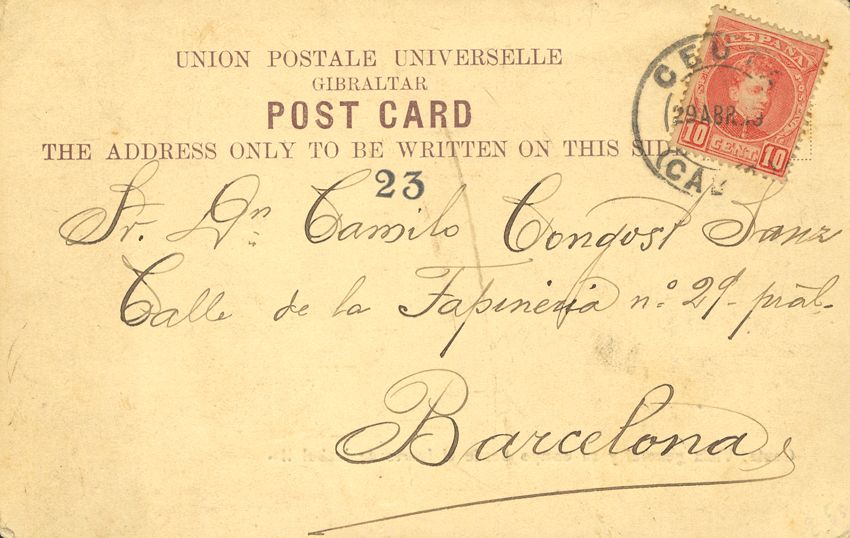 UNION POSTALE UNIVERSELLE
GIBRALTAR
POST CARD
THE ADDRESS ONLY TO BE WRITTEN ON THIS SID
CEU
29 ABR
(CAD
ESPAÑA
10 CENT. 10
23
Sr. Dn Camilo Congost Sanz
Calle de la Tapineria nº 29- pral-
Barcelona